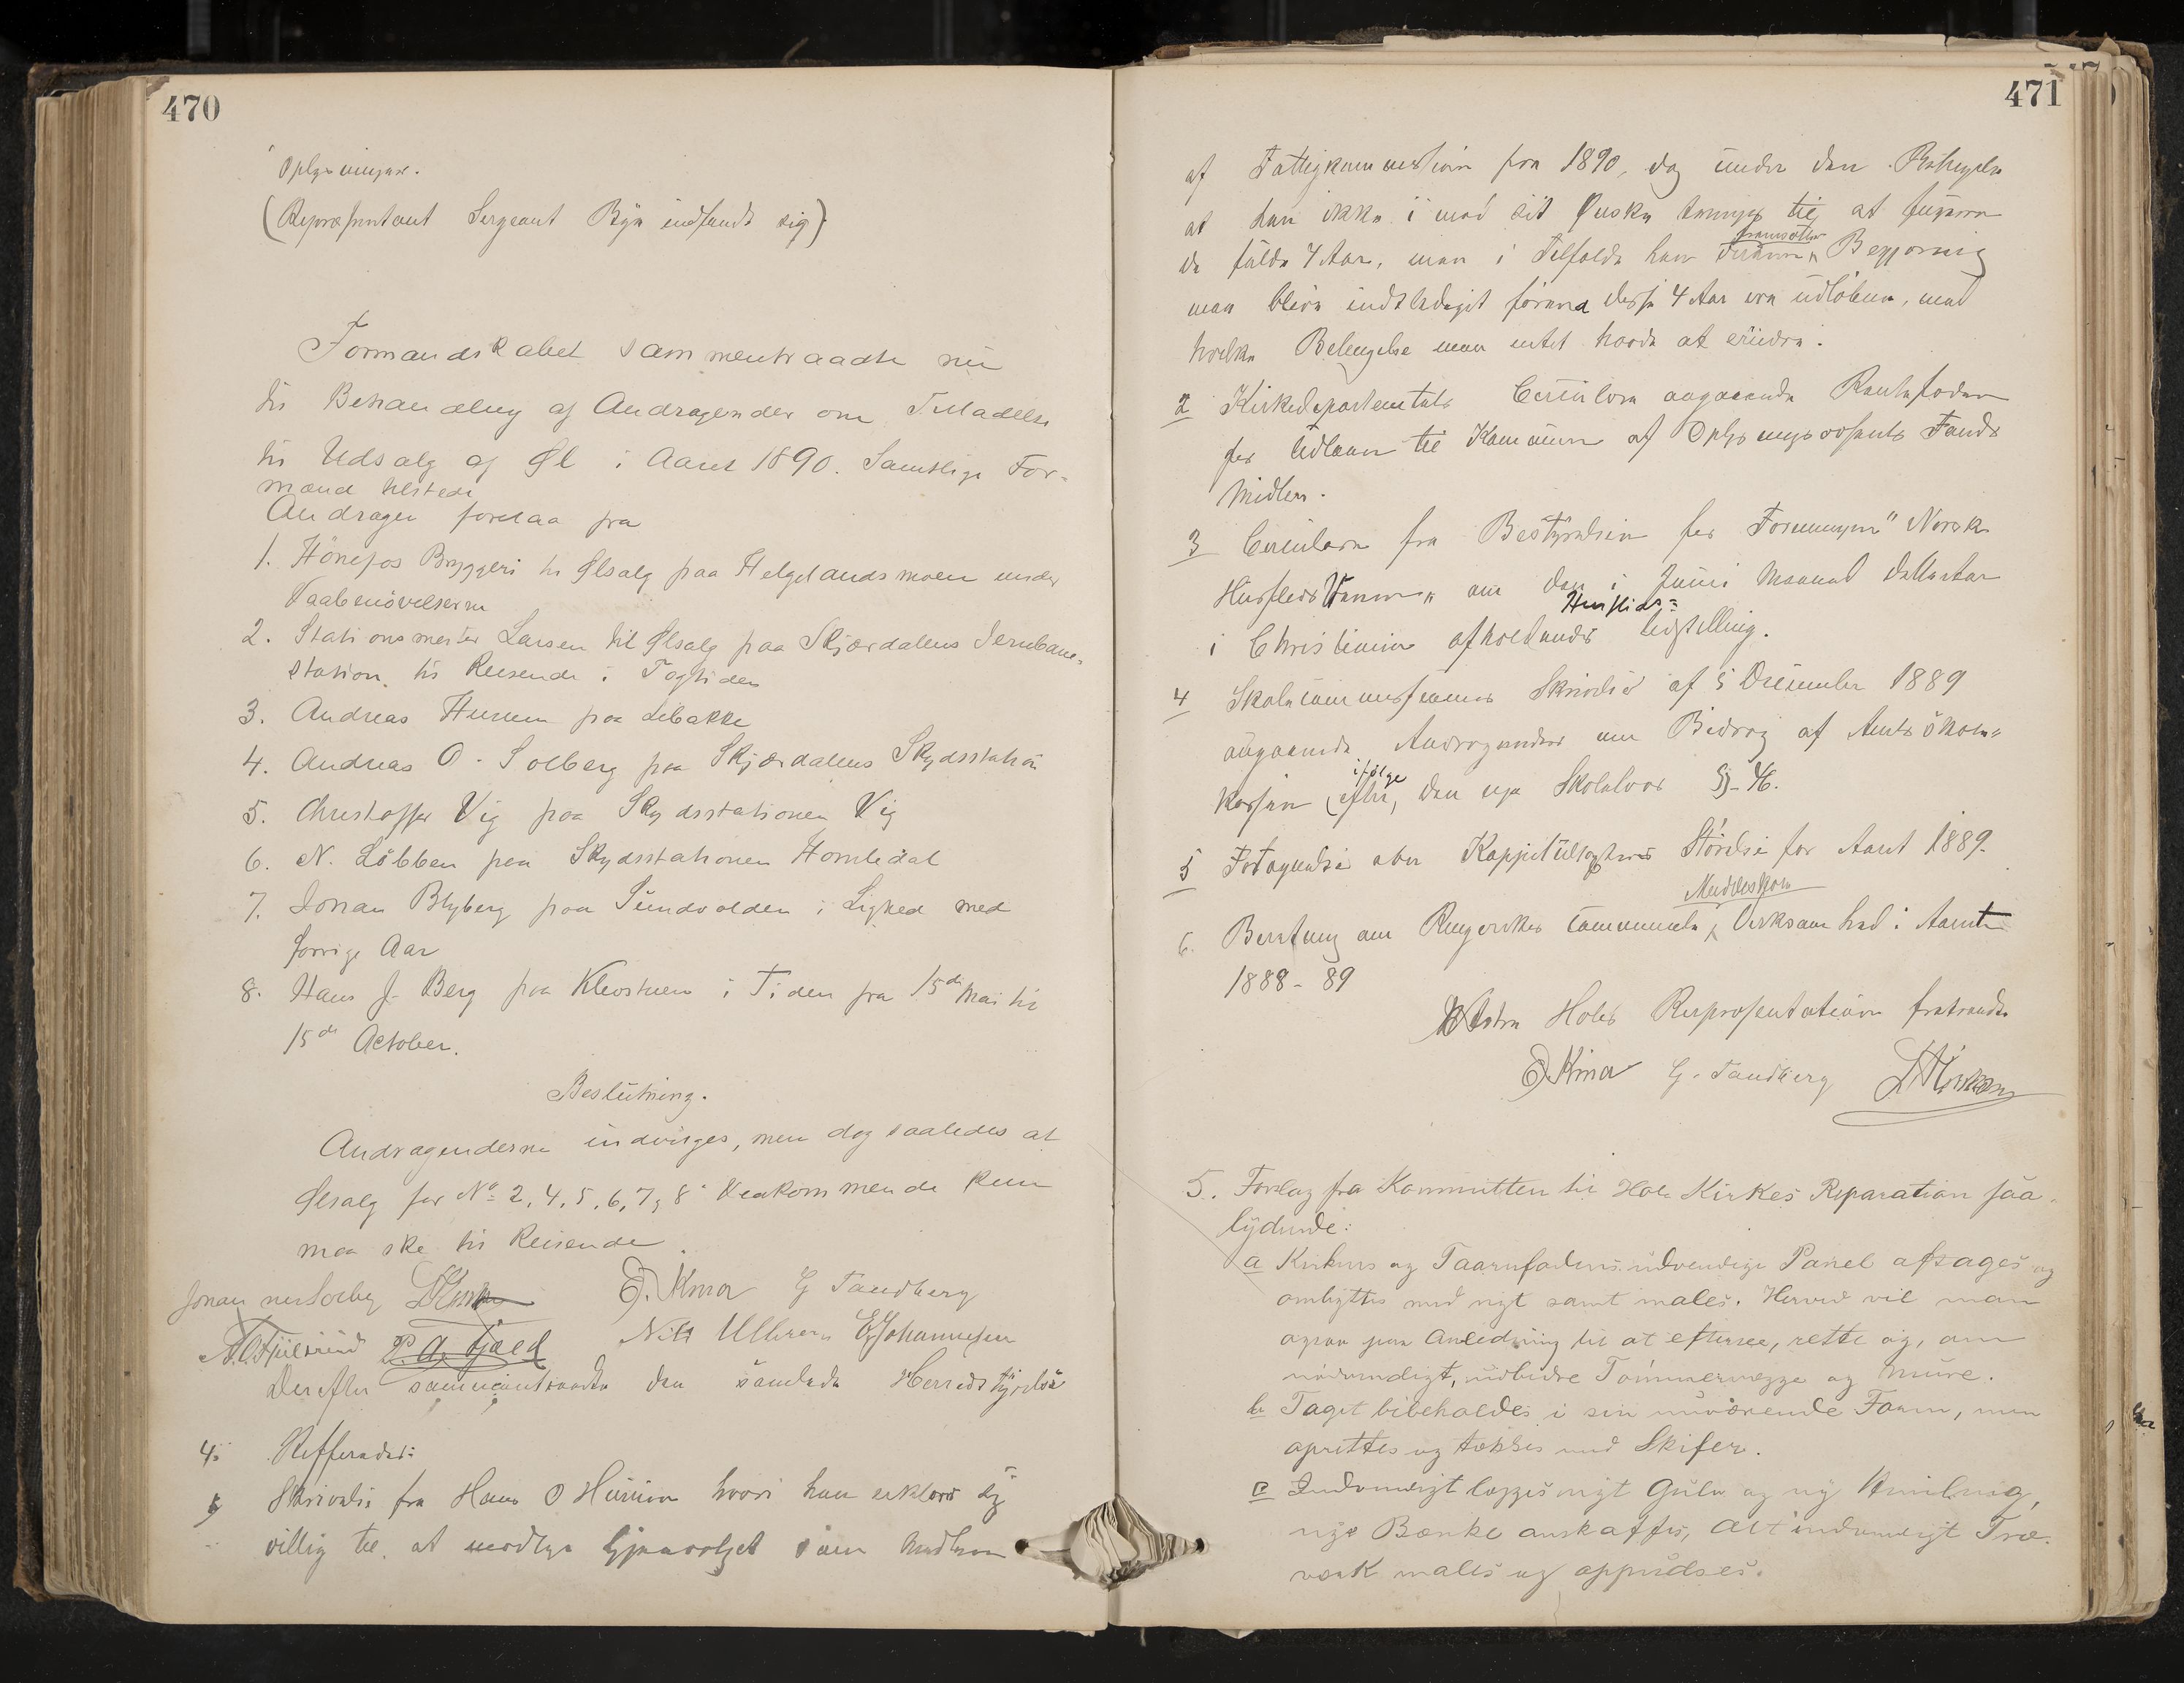 470
Oplysninger.
(Repræsentant Sergeant Bye indfandt sig)
Formandskabet sammentraadte nu
til Behandling af Andragender om Tilladelse
til Udsalg af Øl i Aaret 1890. Samtlige For-
mænd tilstede
Andragen forelaa fra
1. Hönefos Bryggeri til Ølsalg paa Helgelandsmoen under
Vaabenövelserne
2. Stationsmester Larsen til Ølsalg paa Skjærdalens Jernbane-
station til Reisende i Togtiden
3. Andreas Hurum paa Lebakke
4. Andreas O. Solberg paa Skjærdalens Skydsstation
5. Christoffer Vig paa Skydsstationen Vig
6. N. Löbben paa Skydsstationen Homledal
7. Johan Blyberg paa Sundvolden i Lighed med
forrige Aar
8. Hans J. Berg paa Kleostuen i Tiden fra 15de Mai til
15de October.
Beslutning.
Andragenderne indvilges, men dog saaledes at
Ølsalg for No 2, 4, 5, 6, 7, 8 Vedkommende kun
maa ske til Reisende
G Tandberg
P. A. Fjeld E Johannesen
Derefter sammentraadte den samlede Herredsstyrelse
4. Refferadet:
Skrivelse fra Hans O Hurum hvori han erklærer sig
villig til at modtage Gjenvalget som Medlem
471
af Fattigkommission fra 1890, dog under den Betingelse
at han ikke imod sit Ønske tvinges til at fungere
de fulde 4 Aar, men i Tilfælde han fremsætter Begjæring
maa blive indtledaget forinna disse 4 Aar ere udlöbne, mod
hvilke Betingelse man intet havde at erindre.
2 Kirkedepartementets Cirkulære angaaende Rentefoden
for Udlaan til Kommuner af Oplysningsvæsenets Fonds
Midler.
3 Circulære fra Bestyrelsen for Foreningen "Norsk
Husflids Venner" om den i Juni Maaned dette Aar
i Christiania afholdende Husflids- Udstilling.
4 Skolecommissionens Skrivelse af 5 December 1889
angaaende Andragender om Bidrag af Amtsskole-
kassen ifølge den nye Skolelovs § 46.
5 Fortegnelse over Kapitultagternes Störelse for Aaret 1889.
6. Beretning om Ringerikes communale Middelskoles Virksomhed i Aaret
1888-89
Hole Representation fratraadte
G. Tandberg
5. Forslag fra Kommitten til Hole Kirkes Reparation saa-
lydende:
a Kirkens og Taarnfodens udvendige Panel aftages og
ombyttes med nyt samt males. Herved vil man
ogsaa faa Anledning til at efterse, rette og, om
nödvendigt, udbedre Tömmervegge og Mure.
b Taget bibeholdes i sin nuværende Form, men
oprettes og tækkes med Skifer.
c Indvendigt lægges nyt Gulv og ny Himling,
nye Bænke anskaffes, Alt indvendigt Træ-
værk males og oppudses.